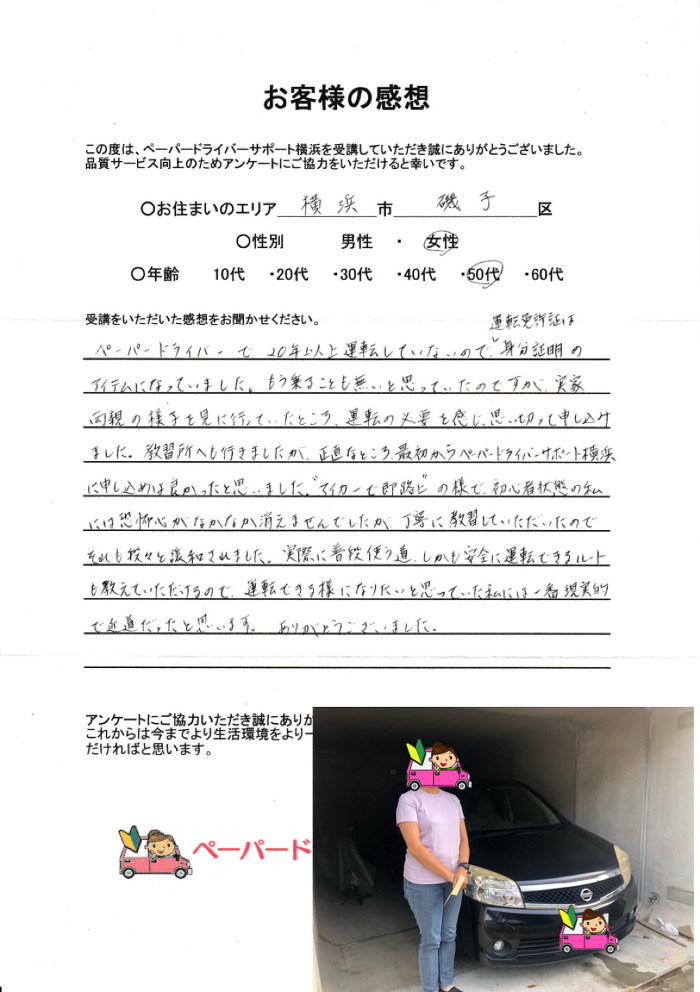 お客様の感想
この度は、ペーパードライバーサポート横浜を受講していただき誠にありがとうございました。
品質サービス向上のためアンケートにご協力をいただけると幸いです。
〇お住まいのエリア 横浜 市 磯子 区
〇性別 男性 ・ 女性
〇年齢 10代 ・20代 ・30代 ・40代 ・50代 ・60代
受講をいただいた感想をお聞かせください。
運転免許証は
ペーパードライバーで20年以上運転していないので、身分証明の
アイテムになっていました。もう乗ることも無いと思っていたのですが、実家
両親の様子を見に行っていたところ、運転の必要を感じ、思い切って申し込み
ました。教習所へも行きましたが、正直なところ、最初からペーパードライバーサポート横浜
に申し込めば良かったと思いました。"マイカーで即路上"の様で、初心者状態の私
には恐怖心がなかなか消えませんでしたが、丁寧に教習していただいたので
それも段々と緩和されました。実際に普段使う道、しかも安全に運転できるルート
も教えていただけるので、運転できる様になりたいと思っていた私には一番現実的
で近道だったと思います。 ありがとうございました。
アンケートにご協力いただき誠にありが
これからは今までより生活環境をより一
だければと思います。
ペーパード